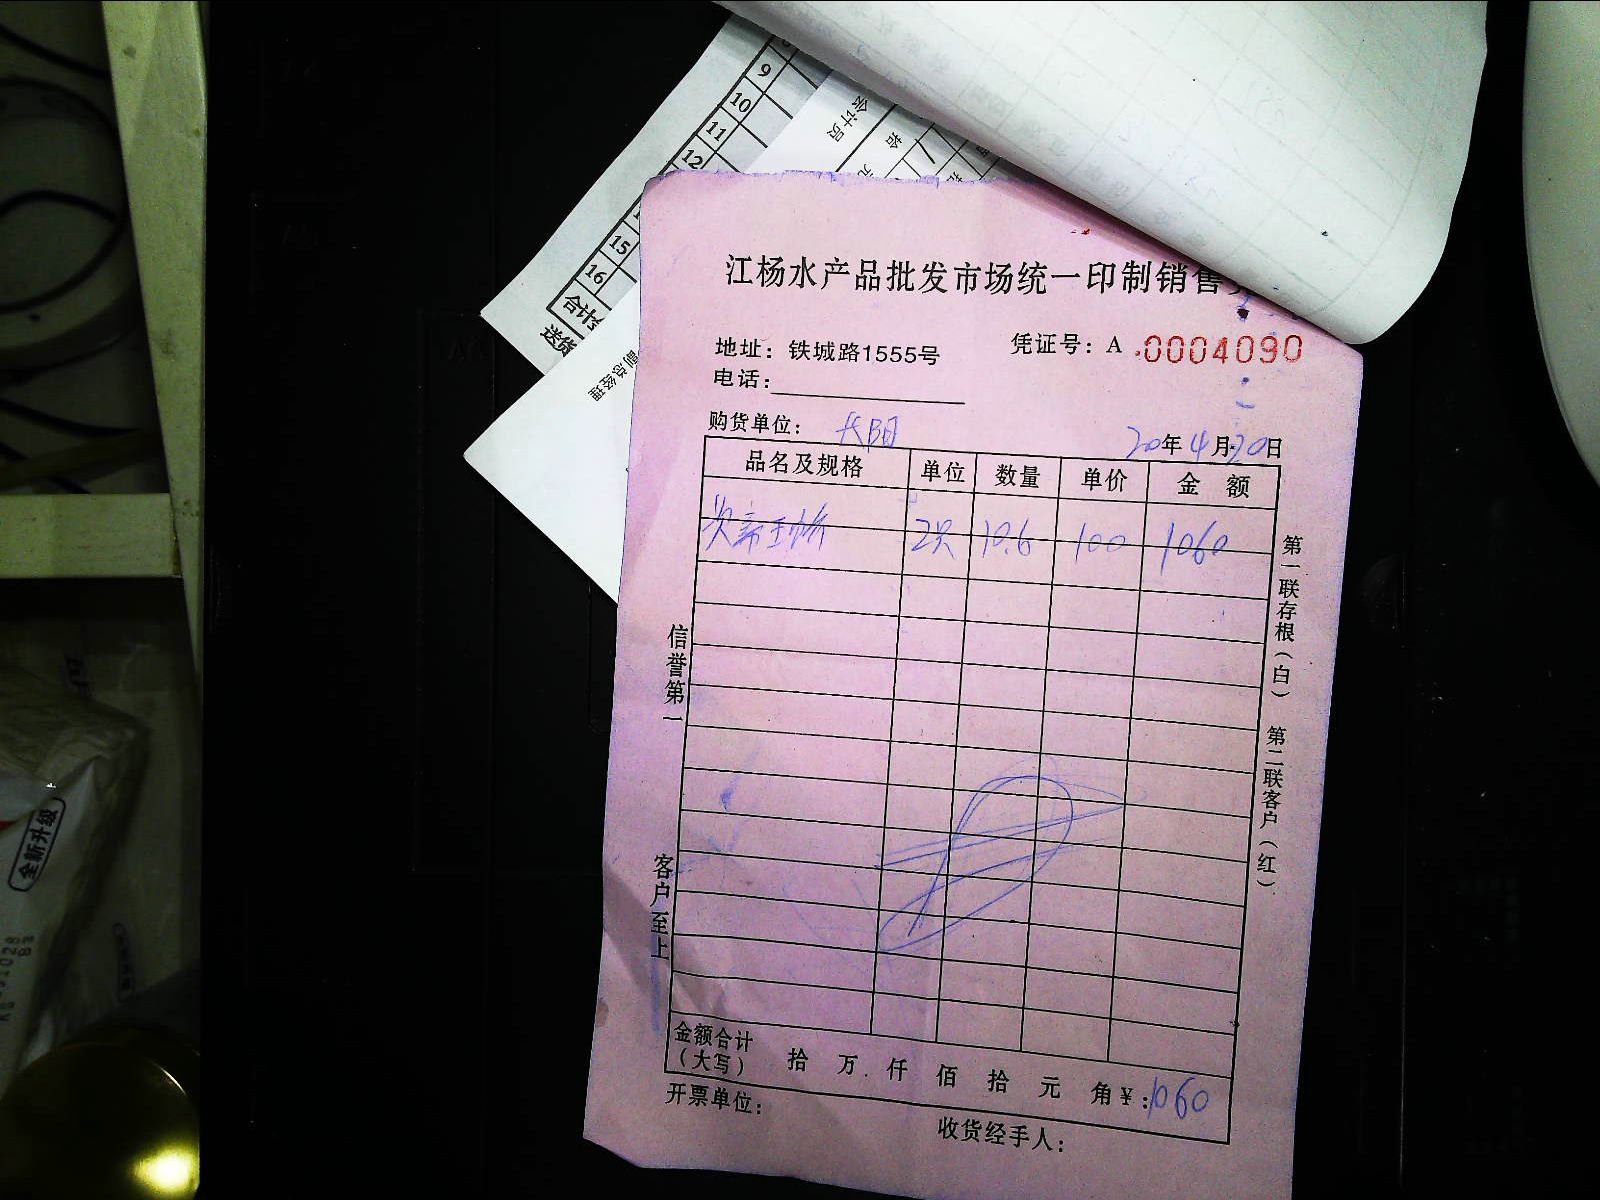 9
10
11
12
15
16
合计
送货
会计员
拾
元
副总经理
江杨水产品批发市场统一印制销售
地址：铁城路1555号
凭证号：A 0004090
电话：
购货单位： 长阳
20年4月20日
品名及规格 单位 数量 单价 金 额
2只 10.6 100 1060
信誉第一
客户至上
第一联存根（白）
第二联客户（红）
金额合计
（大写） 拾 万 仟 佰 拾 元 角 ¥：1060
开票单位：
收货经手人：
全新升级